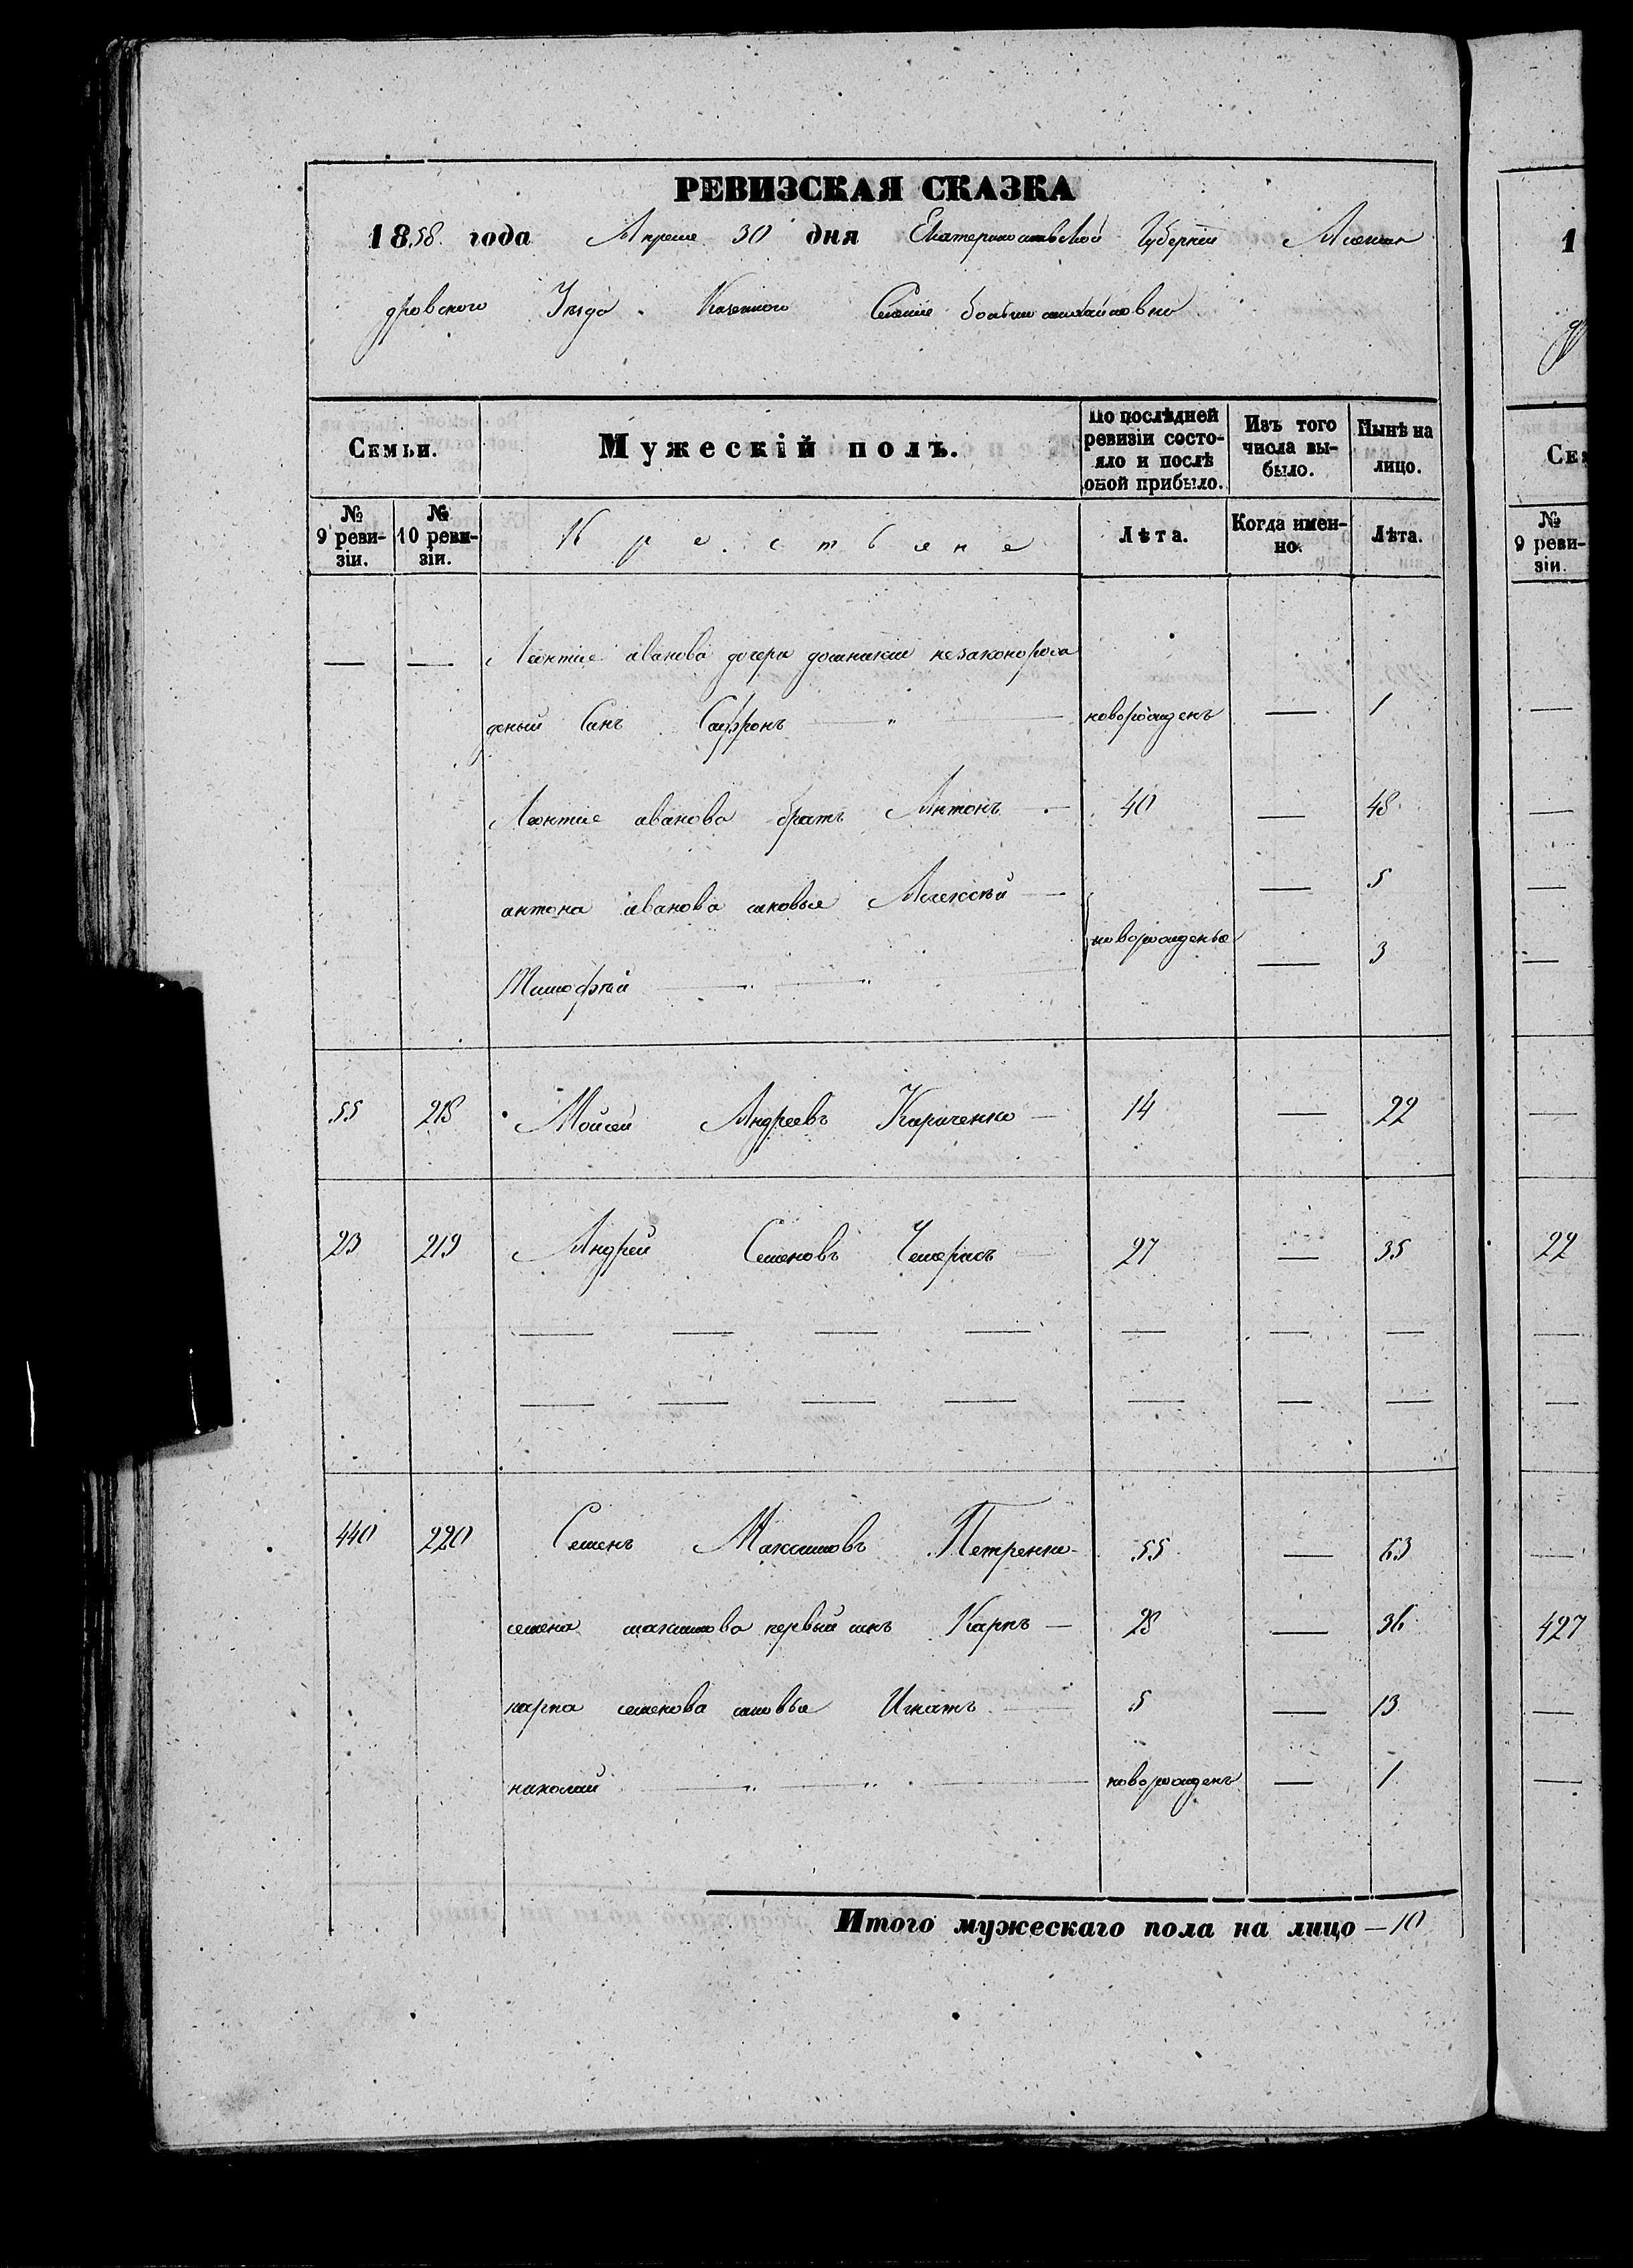 РЕВИЗСКАЯ СКАЗКА
1858 года Апреля 30 дня Екатеринославской Губернии Алексан
дровского Уезда Казенного Селение большемихайловка
Семьи. Мужескій полъ. По послѣдней ревизіи состояло и послѣ оной прибыло. Изъ того числа выбыло. Нынѣ на лицо.
№ 9 ревизіи. № 10 ревизіи. Крестьяне Лѣта. Когда именно. Лѣта.
— — Леонтие иванова дочери незаконорож
деный Синъ Сафронъ — " — новорожденъ — 1
Леонтие иванова братъ Антонъ — 40 — 48
антона иванова синовья Алексѣй — — 5
новорожденые
Тимофѣй — " — " — 3
55 218 Мойсей Андреевъ Кириченко — 14 — 22
23 219 Андрей Семеновъ Чемерисъ 27 — 35
— — — — — — —
— — — — — — —
440 220 Семенъ Максимовъ Петренко 55 — 63
семена максимова первый синъ Карпъ — 28 — 36
карпа семенова синовья Игнатъ — 5 — 13
николай — " — " — новорожденъ — 1
Итого мужескаго пола на лицо — 10
1
Се
№ 9 ревизіи.
22
427